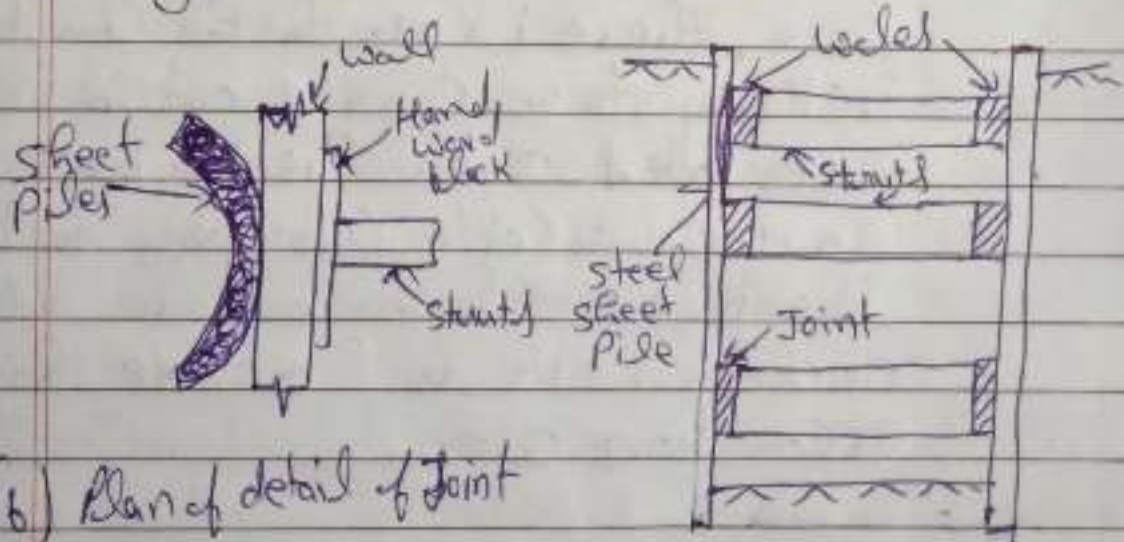 Wall
Hard
wood
block
Sheet
piles
Struts
Wales
Struts
steel
sheet
Pile
Joint
(b) Plan of detail of Joint